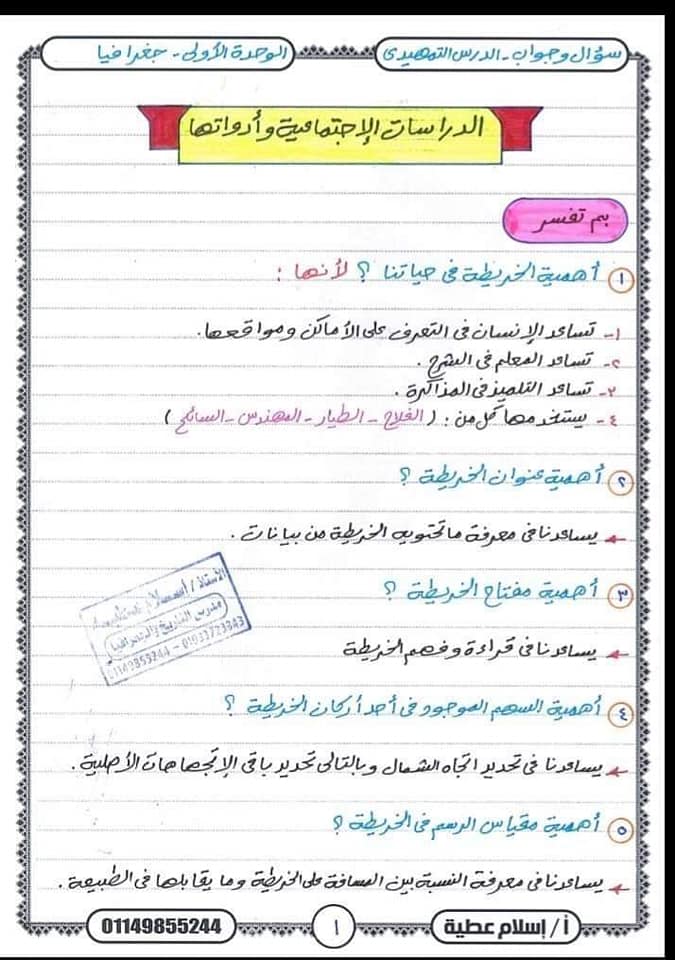 سؤال وجواب - الدرس التمهيدى
الوحدة الأولى - جغرافيا
الدراسات الإجتماعية وأدواتها
بم تفسر
١ أهمية الخريطة فى حياتنا ؟ لأنها :
١- تساعد الإنسان فى التعرف على الأماكن ومواقعها.
٢- تساعد المعلم فى الشرح .
٣- تساعد التلميذ فى المذاكرة .
٤- يستخدمها كل من : ( الفلاح - الطيار - المهندس - السائح )
٢ أهمية عنوان الخريطة ؟
يساعدنا فى معرفة ما تحتويه الخريطة من بيانات .
٣ أهمية مفتاح الخريطة ؟
يساعدنا فى قراءة وفهم الخريطة
الأستاذ / إسلام عطية
مدرس التاريخ والجغرافيا
01149855244 -
٤ أهمية السهم الموجود فى أحد أركان الخريطة ؟
يساعدنا فى تحديد اتجاه الشمال وبالتالى تحديد باقى الإتجاهات الأصلية .
٥ أهمية مقياس الرسم فى الخريطة ؟
يساعدنا فى معرفة النسبة بين المسافة على الخريطة وما يقابلها فى الطبيعة .
أ / إسلام عطية
١
01149855244